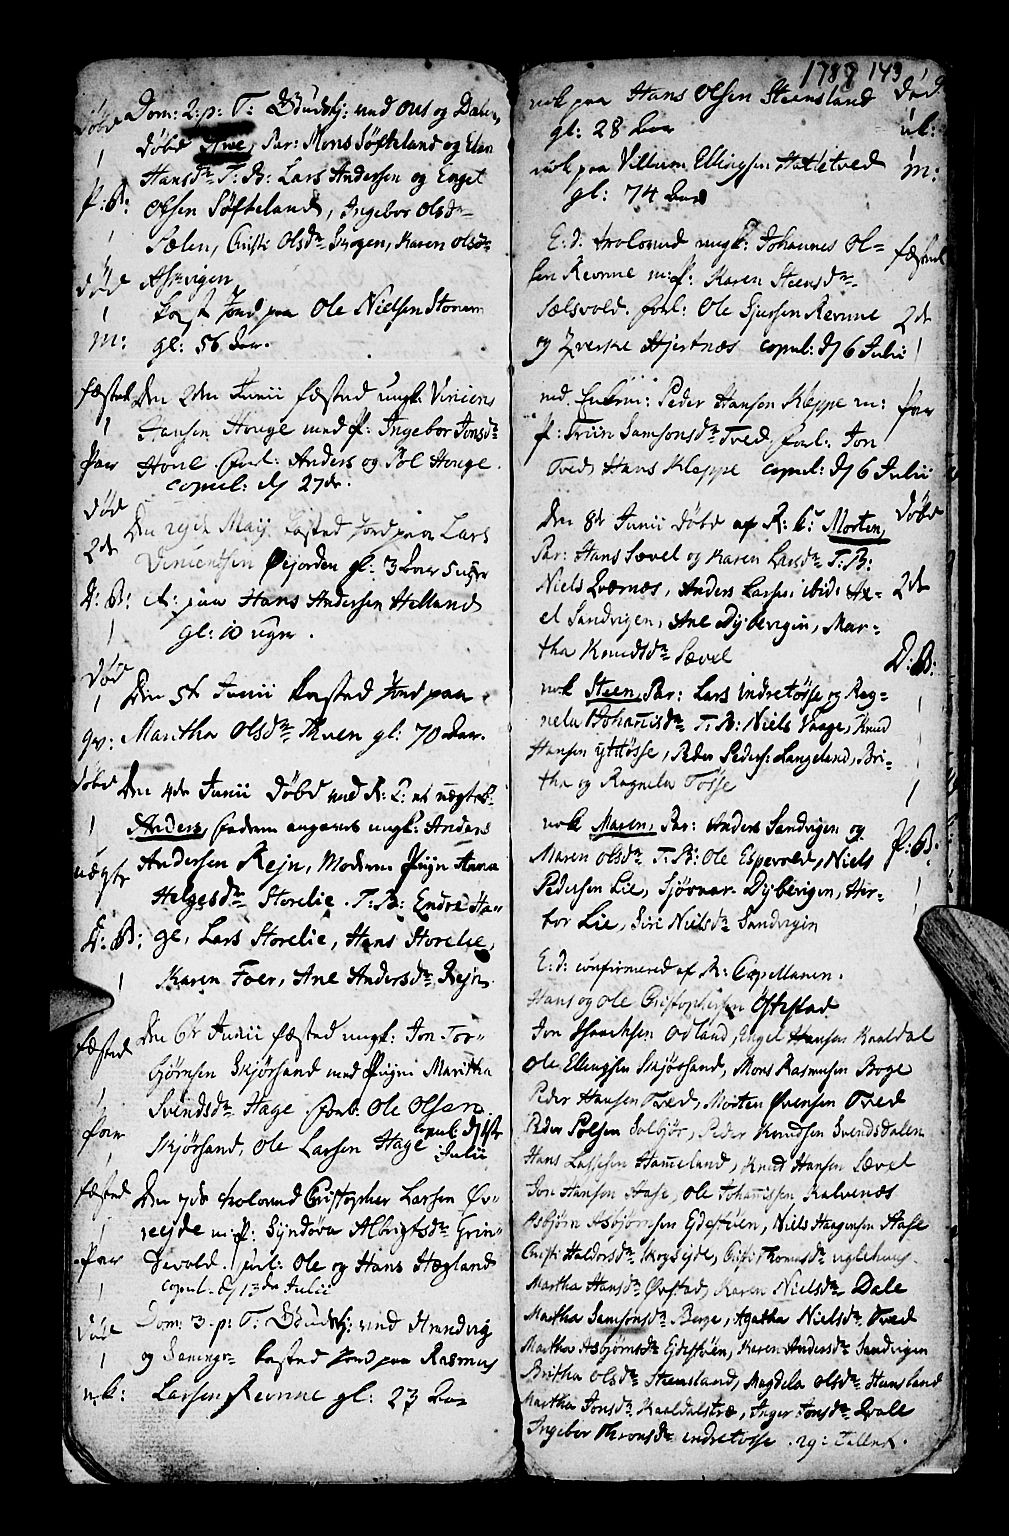 1787 143
døbt
1
P: B:
1
død
1
m:
Dom: 2. p: T: Gudstj: med ous og Dalen,
døbt Ane, Par: Mons Søfteland og Elen
Hansdr T: B: Lars Andersen og Engel
Olsen Søfteland, Ingebor Olsdr
Sælen, Christi Olsdr Skogen, Karen Olsdr
Aschvigen
kast Jord paa Ole Nielsen Stonum
gl: 56 Aar.
fæsted
1
Par
Den 2den Junii fæsted ungk: Vincens
Hansen Houge med P: Ingebor Jonsdr
Houe forl: Anders og Pol Houge.
copul: d/ 27de.
død
2de
D: B:
1
Den 29de Maij kasted Jord paa Lars
Vincentsen Øijorden gl: 3 Aar 5 uger
it: paa Hans Andersen Helland
gl: 10 uger.
død
1
qv:
Den 5te Junii kasted Jord paa
Maritha Olsdr Thuen gl: 70 Aar.
døbt
1
uægte
D: B:
1
Den 4de Junii døbt med K: L: et uægte B:
Anders, faderen angaves ungk: Anders
Andersen Rejn, Moderen Pign Anna
Helgesdr Storelie. T: B: Endre Ha-
ge, Lars Storelie, Hans Storelie,
Karen Foer, Ane Andersdr Rejn.
fæsted
1
Par
Den 6te Junii fæsted ungk: Jon Tor-
bjørnsen Skjørsand med Pigen Maritha
Svendsdr Hage. forl: Ole Olsen
Skjørsand, Ole Larsen Hage copul: d/ 1ste
Julii
fæsted
1
Par
1
Den 7de trolovud Christopher Larsen Øv-
reejde m: P: Syndøva Albrigtsdr Grin-
devold. forl: Ole og Hans Hægland
copul. d/ 13de Julii
død
1
u.k:
Dom: 3. p: T: Gudstj: med Strandvig
og kasted Jord paa Rasmus
Larsen Revnne gl: 23 Aar
nok paa Hans Olsen Steensland
gl: 28 Aar
død
u.k:
nok paa Villum Ellingsen Hatletved
gl: 74 Aar
m:
E: d: trolovud ungk: Johannes Ol-
sen Revnne m: P: Karen Steensdr
Sælsvold. forl: Ole Sjursen Revnne
og Zverske Hjertnæs copul: d/ 6 Julii
fæsted
2de
1
Par
nok Peder Hansen Kleppe m:
P: Triin Samsonsdr Tved. forl: Jon
Tved Hans Kleppe copul: d/ 6 Julii
Den 8de Junii døbt af K: C: Morten,
Par: Hans Sævel og Karen Larsdr T: B:
Niels Qværnes, Anders Larsen ibid: Ax-
el Sandvigen, Ane Dybevigen, Mar-
tha Knudsdr Sævel
døbt
2de
D: B:
nok Steen, Par: Lars indretøsse og Rag-
nela Johannisdr T: B: Niels Vaage, Knud
Hansen yttøsse, Peder Peders: Langeland, Bri-
tha og Ragnela Tøsse
1
nok Maren, Par: Anders Sandvigen og
Maren Olsdr T: B: Ole Espevold, Niels
Pedersen Lie, Sjovnar Dybevigen, Her-
bor Lie, Siri Nielsdr Sandvigen
P: B:
1
E: d: confirmered af K: Capellanen.
Hans og Ole Christophersen Østestad
Jon Isaachsen Odland, Engel Hansen Kaaldal
Ole Ellingsen Skjørsand, Mons Rasmusen Boge
Peder Hansen Tved, Morten Øvensen Tved
Peder Polsen Solbjør, Peder Knudsen Svendsdalen
Hans Lassesen Hameland, Knud Hansen Sævel
Jon Hansen Hage, Ole Johannissen Kalvenæs
Asbjørn Asbjørnsen Gjdestøen, Niels Haagensen Hage
Christi Haldorsdr Skogsejde, Christi Thomasdr uglehuus.
Martha Hansdr Øvstad, Karen Nielsdr Dale
Martha Samsonsdr Berge, Agatha Nielsdr Tved
Martha Asbjørnsdr Gjdestøen, Karen Andersdr Sandvigen
Britha Olsdr Steensland, Magdela Olsdr Hansland
Martha Jonsdr Kaaldalstræ, Inger Jonsdr Qvale
Ingebor Thronsdr indretøsse. 29: Tallet.